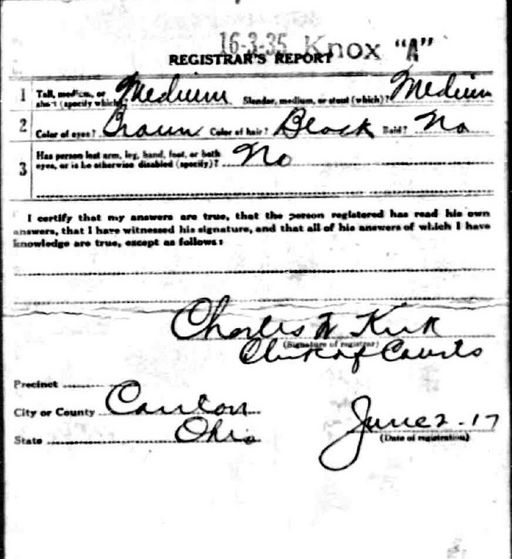 16-3-35 Knox "A"
REGISTRAR'S REPORT
1 Tall, medium, or short (specify which)? Medium Slender, medium, or stout (which)? Medium
2 Color of eyes? Brown Color of hair? Black Bald? No
3 Has person lost arm, leg, hand, foot, or both eyes, or is he otherwise disabled (specify)? No
I certify that my answers are true, that the person registered has read his own
answers, that I have witnessed his signature, and that all of his answers of which I have
knowledge are true, except as follows:
Charles W Kirk
(Signature of registrar)
Clerk of Courts
Precinct
City or County Canton
State Ohio
June 2-17
(Date of registration)